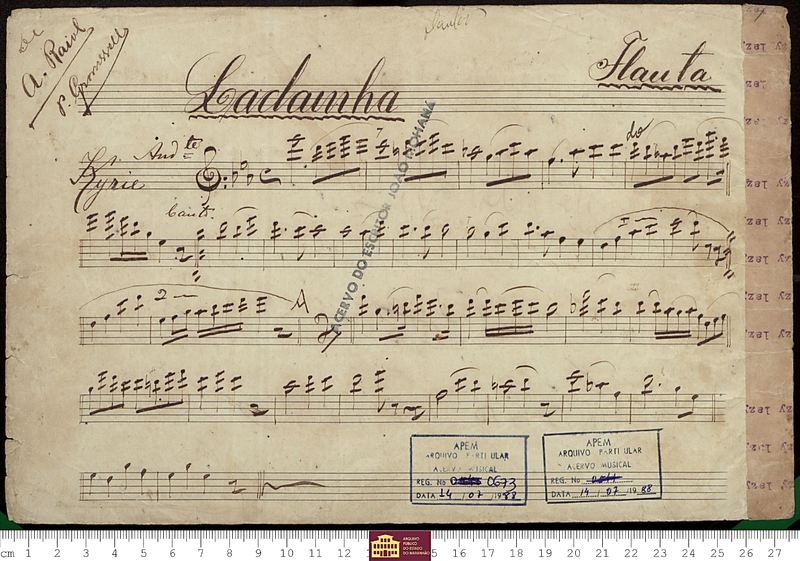 de
A. Raiol
Ladainha
Flauta
Kyrie
And.te
do
Cant.
2
ACERVO DO ESCRITOR JOÃO MOHANA
APEM
ARQUIVO PARTICULAR
ACERVO MUSICAL
REG. No 0673
DATA 14 / 07 / 19 88
APEM
ARQUIVO PARTICULAR
ACERVO MUSICAL
REG. No
DATA 14 / 07 / 19 88
cm 1 2 3 4 5 6 7 8 9 10 11 12 15 16 17 18 19 20 21 22 23 24 25 26 27
ARQUIVO
PÚBLICO
DO ESTADO
DO MARANHÃO